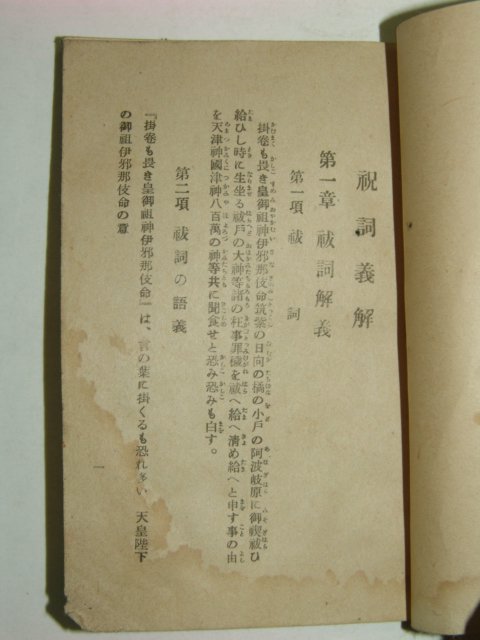 祝詞義解
第一章 祓詞解義
第一項 祓 詞
掛卷も畏き皇御祖神伊邪那伎命筑紫の日向の橘の小戸の阿波岐原に御禊祓ひ
給ひし時に生坐る祓戸の大神等諸の枉事罪穢を祓へ給へ清め給へと申す事の由
を天津神國津神八百萬の神等共に聞食せと恐み恐みも白す。
第二項 祓詞の語義
『掛卷も畏き皇御祖神伊邪那伎命』は、言の葉に掛くるも恐れ多い 天皇陛下
の御祖伊邪那伎命の意
一